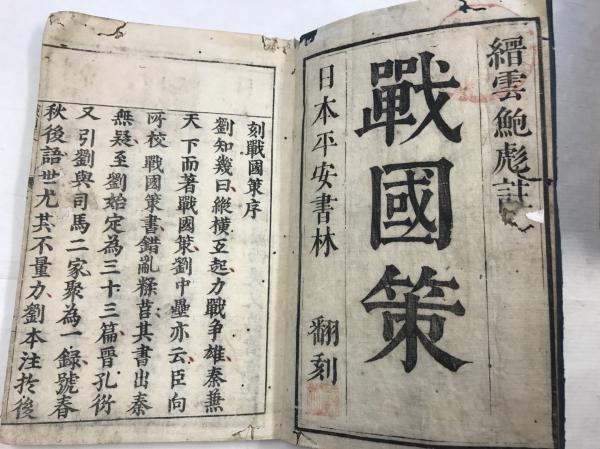 縉雲鮑彪註
戰國策
日本平安書林 翻刻
刻戰國策序
劉知幾曰縱橫互起力戰爭雄秦兼
天下而著戰國策劉中壘亦云臣向
所校戰國策書錯亂糅莒其書出秦
無疑至劉始定為三十三篇晉孔衍
又引劉與司馬二家聚為一錄號春
秋後語世尤其不量力劉本注於後